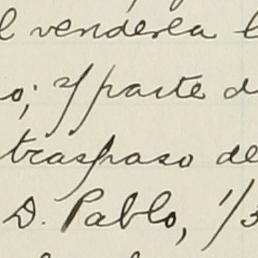 l venderla l
o; y parte d
traspaso de
D. Pablo, 1/3